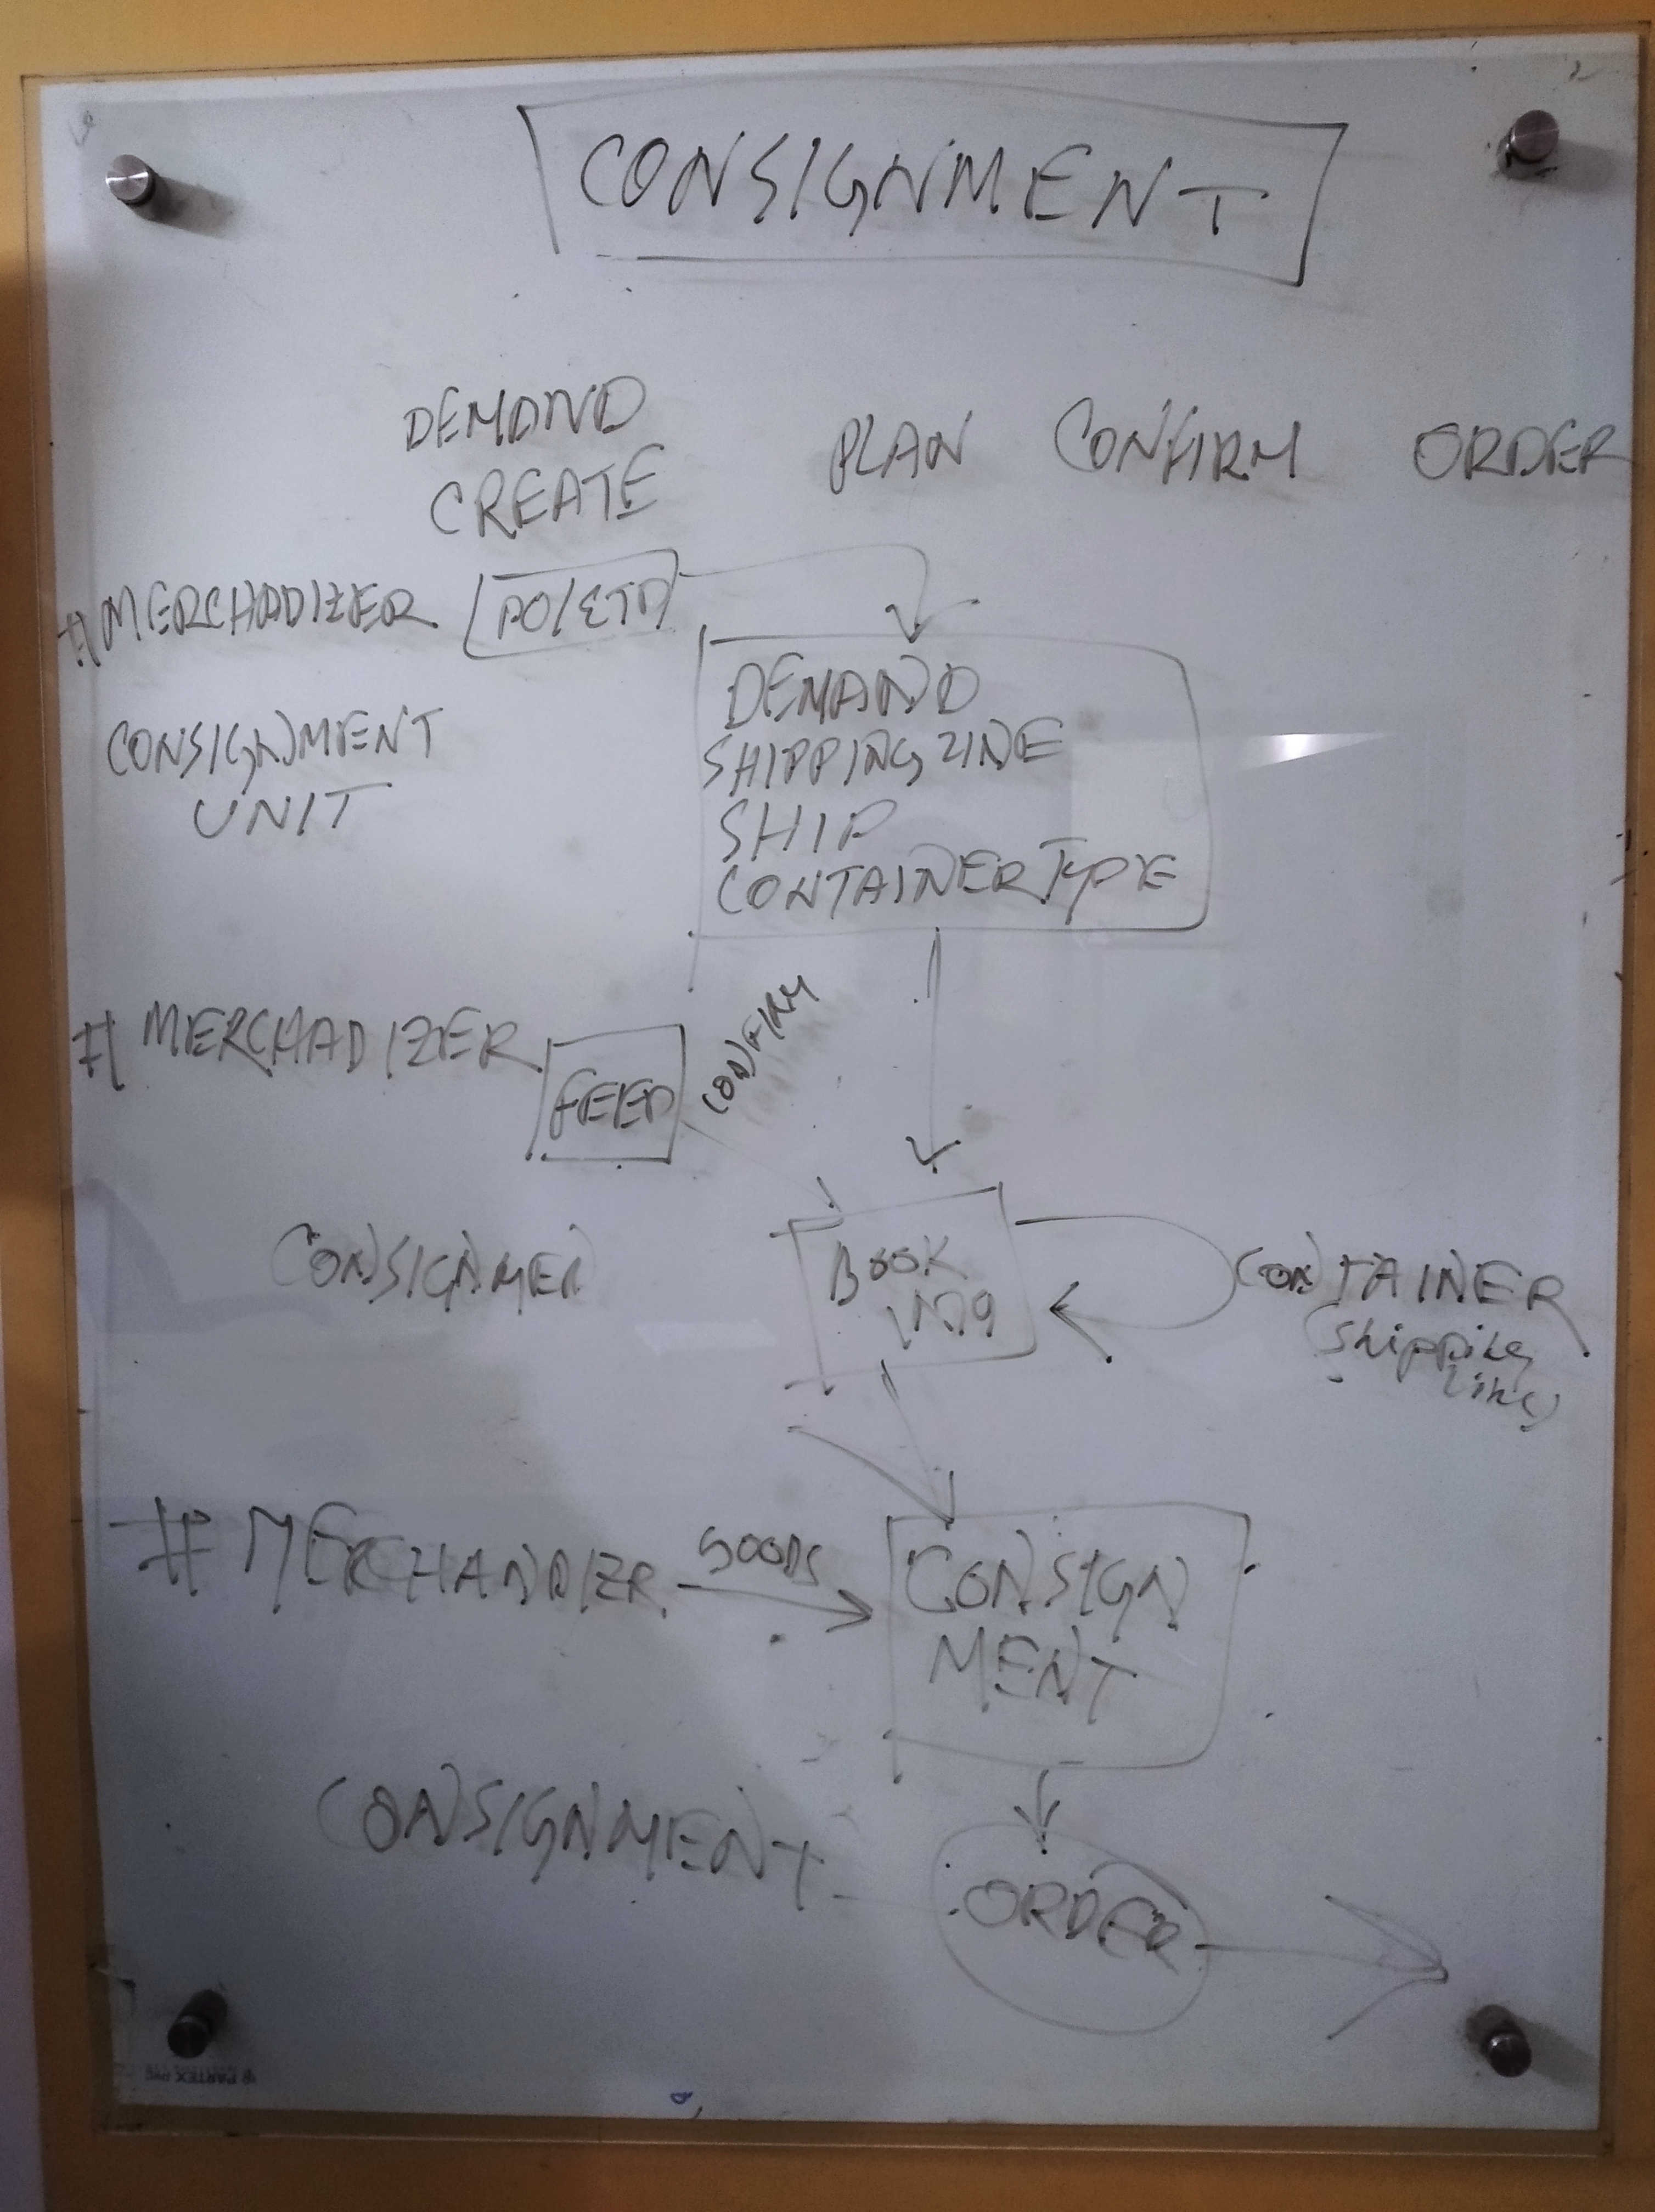 CONSIGNMENT
DEMAND
CREATE
PLAN CONFIRM ORDER
#MERCHADIZER PO/ETD
DEMAND
SHIPPING LINE
SHIP
CONTAINER TYPE
CONSIGNMENT
UNIT
# MERCHADIZER
FEED
CONFIRM
BOOK
ING
CONSIGNMEN
CONTAINER
Shipping
Line
# MERCHANDIZR
GOODS
CONSIGN
MENT
CONSIGNMENT
ORDER
PARTEX PVC